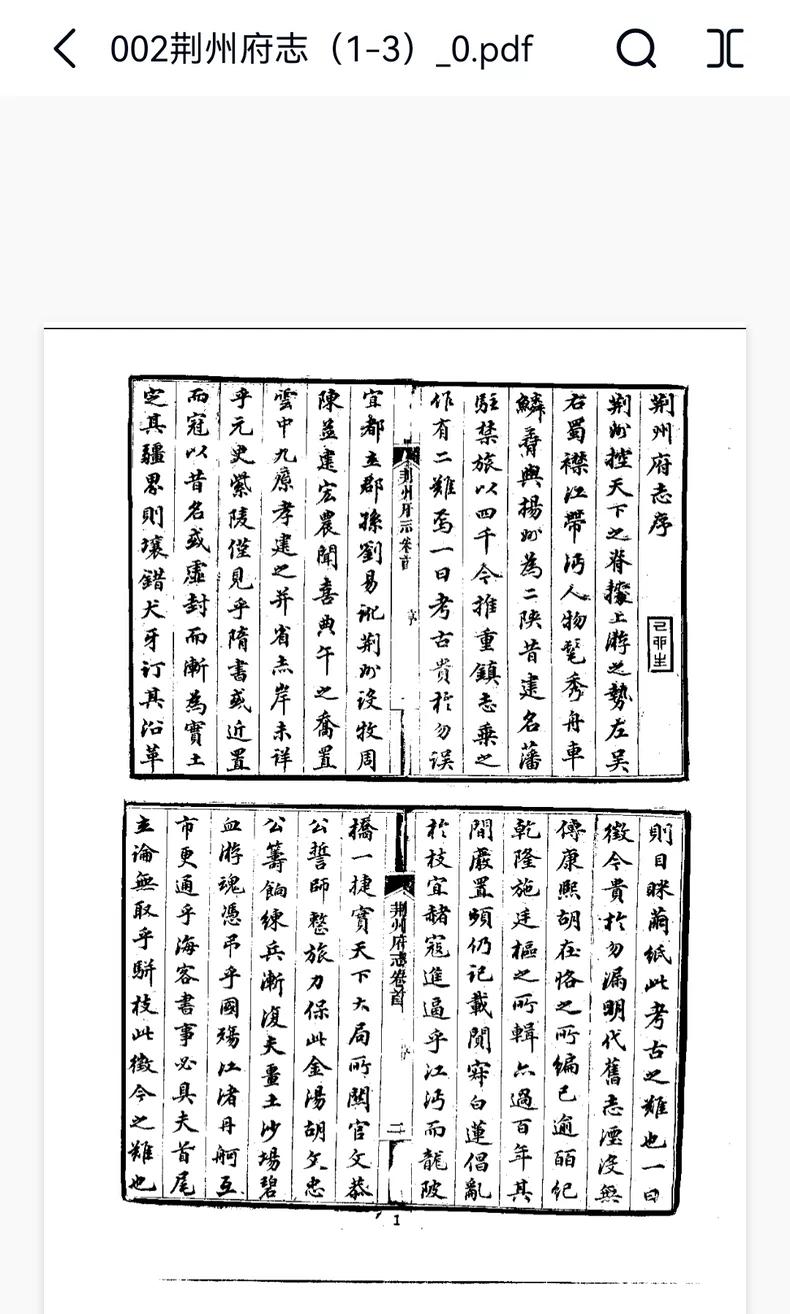 002荆州府志（1-3）_0.pdf
荆州府志序
荆州控天下之脊據上游之勢左吳
右蜀襟江帶沔人物髦秀舟車
鱗脊與揚州為二陝昔建名藩
駐禁旅以四千今推重鎮志乘之
作有二難焉一曰考古貴於勿誤
荆州府志卷首
序
宜都立郡孫劉易訛荆州設牧周
陳並建宏農聞喜典午之喬置
雲中九原孝建之并省赤岸未詳
乎元史紫陵僅見乎隋書或近置
而寇以昔名或虛封而漸為實土
定其疆界則壤錯犬牙訂其沿革
則目眯繭紙此考古之難也一曰
徵今貴於勿漏明代舊志湮沒無
傳康熙胡在恪之所編已逾百紀
乾隆施廷樞之所輯亦過百年其
間嚴置頻仍記載闃寂白蓮倡亂
於枝宜赭寇進逼乎江沔而龍陂
橋一捷實天下大局所關官文恭
公誓師整旅力保此金湯胡文忠
公籌餉練兵漸復夫疆土沙場碧
血游魂憑弔乎國殤江渚丹舸互
市更通乎海客書事必具夫首尾
立論無取乎駢枝此徵今之難也
荆州府志卷首
序
二
1